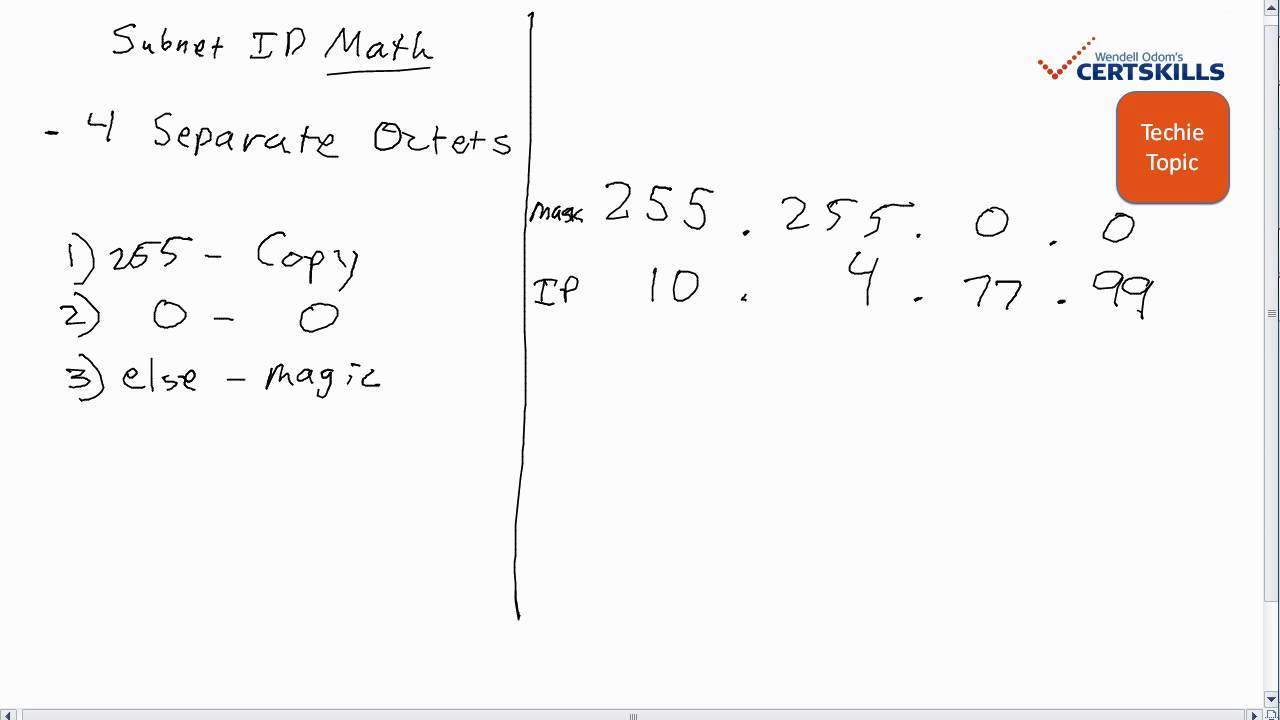 Subnet ID Math
- 4 Separate Octets
1) 255 - Copy
2) 0 - 0
3) else - magic
Wendell Odom's
CERTSKILLS
Techie
Topic
Mask 255 . 255 . 0 . 0
IP 10 . 4 . 77 . 99